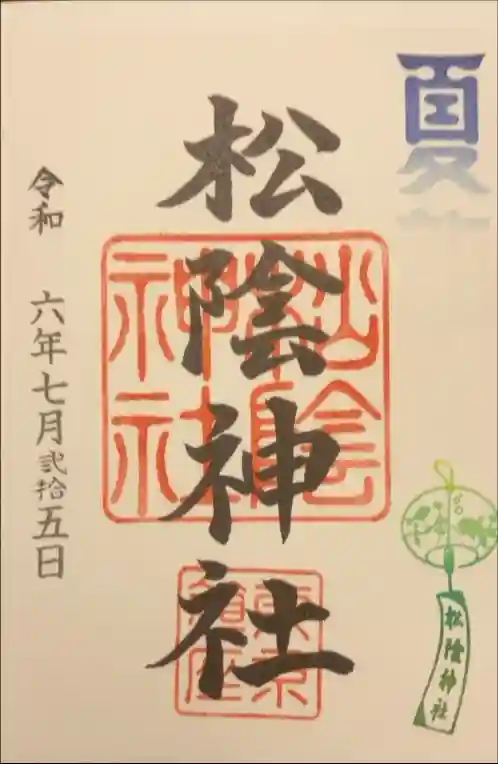 夏
松陰神社
令和 六年七月弐拾五日
松陰神社
東京
鎮座